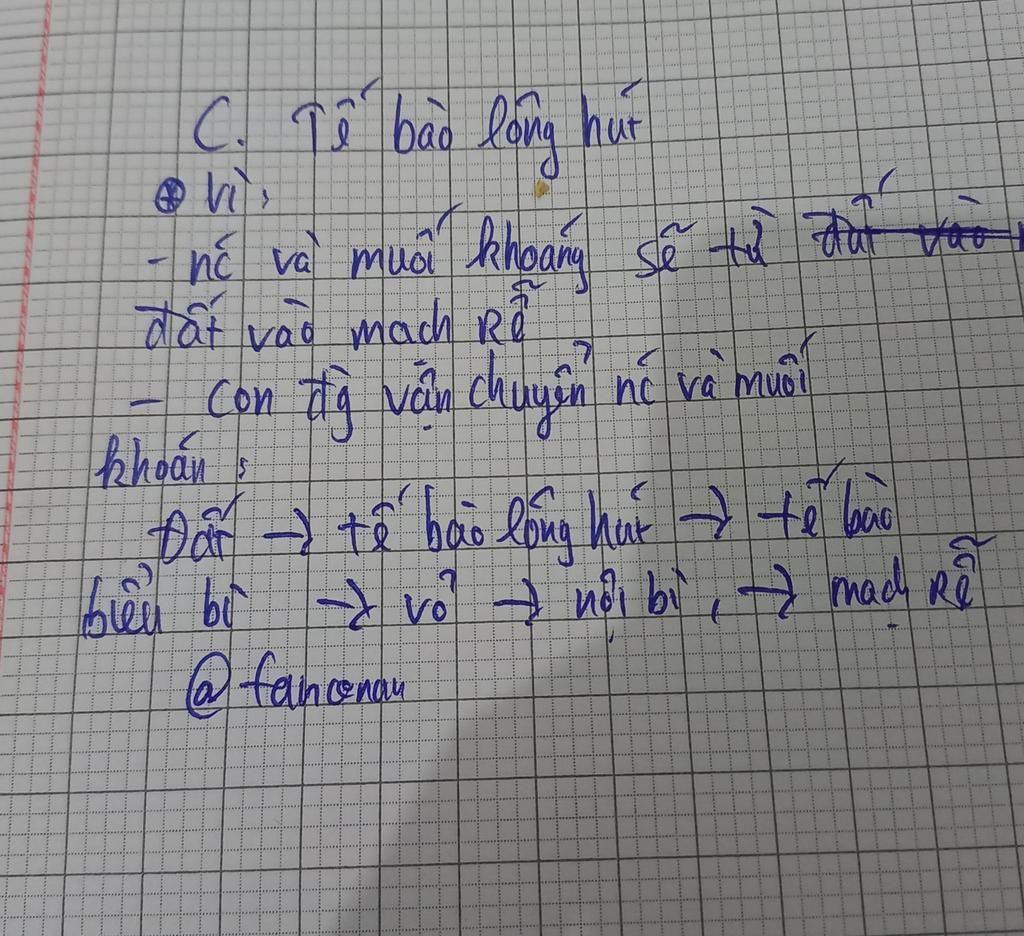 C. Tế bào lông hút
⊕ Vì:
- nć và muối khoáng sẽ từ đất vào
đất vào mạch Rễ
- Con đg vận chuyển nć và muối
khoán:
Đất → tế bào lông hút → tế bào
biểu bì → vỏ → nội bì, → mạch Rễ
@fancenau